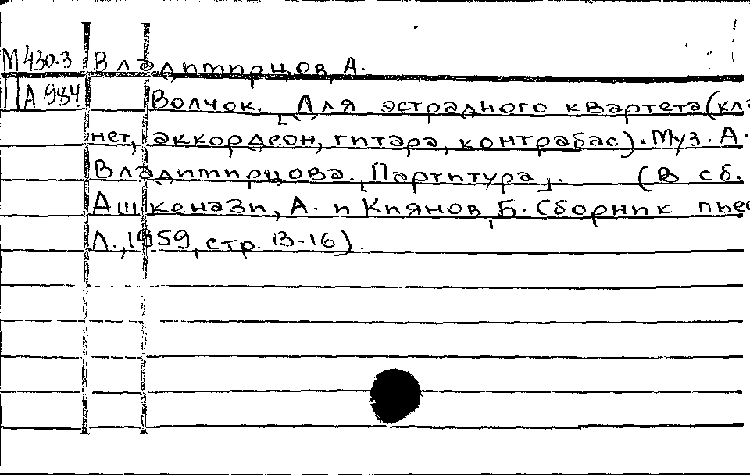 М 430.3 Владимирцов, А.
П А 984 Волчок. [Для эстрадного квартета (кла
нет, аккордеон, гитара, контрабас). Муз. А.
Владимирцова. Партитура]. (В сб.
Ашкенази, А. и Киянов, Б. Сборник пьес
Л., 1959, стр. 13-16)